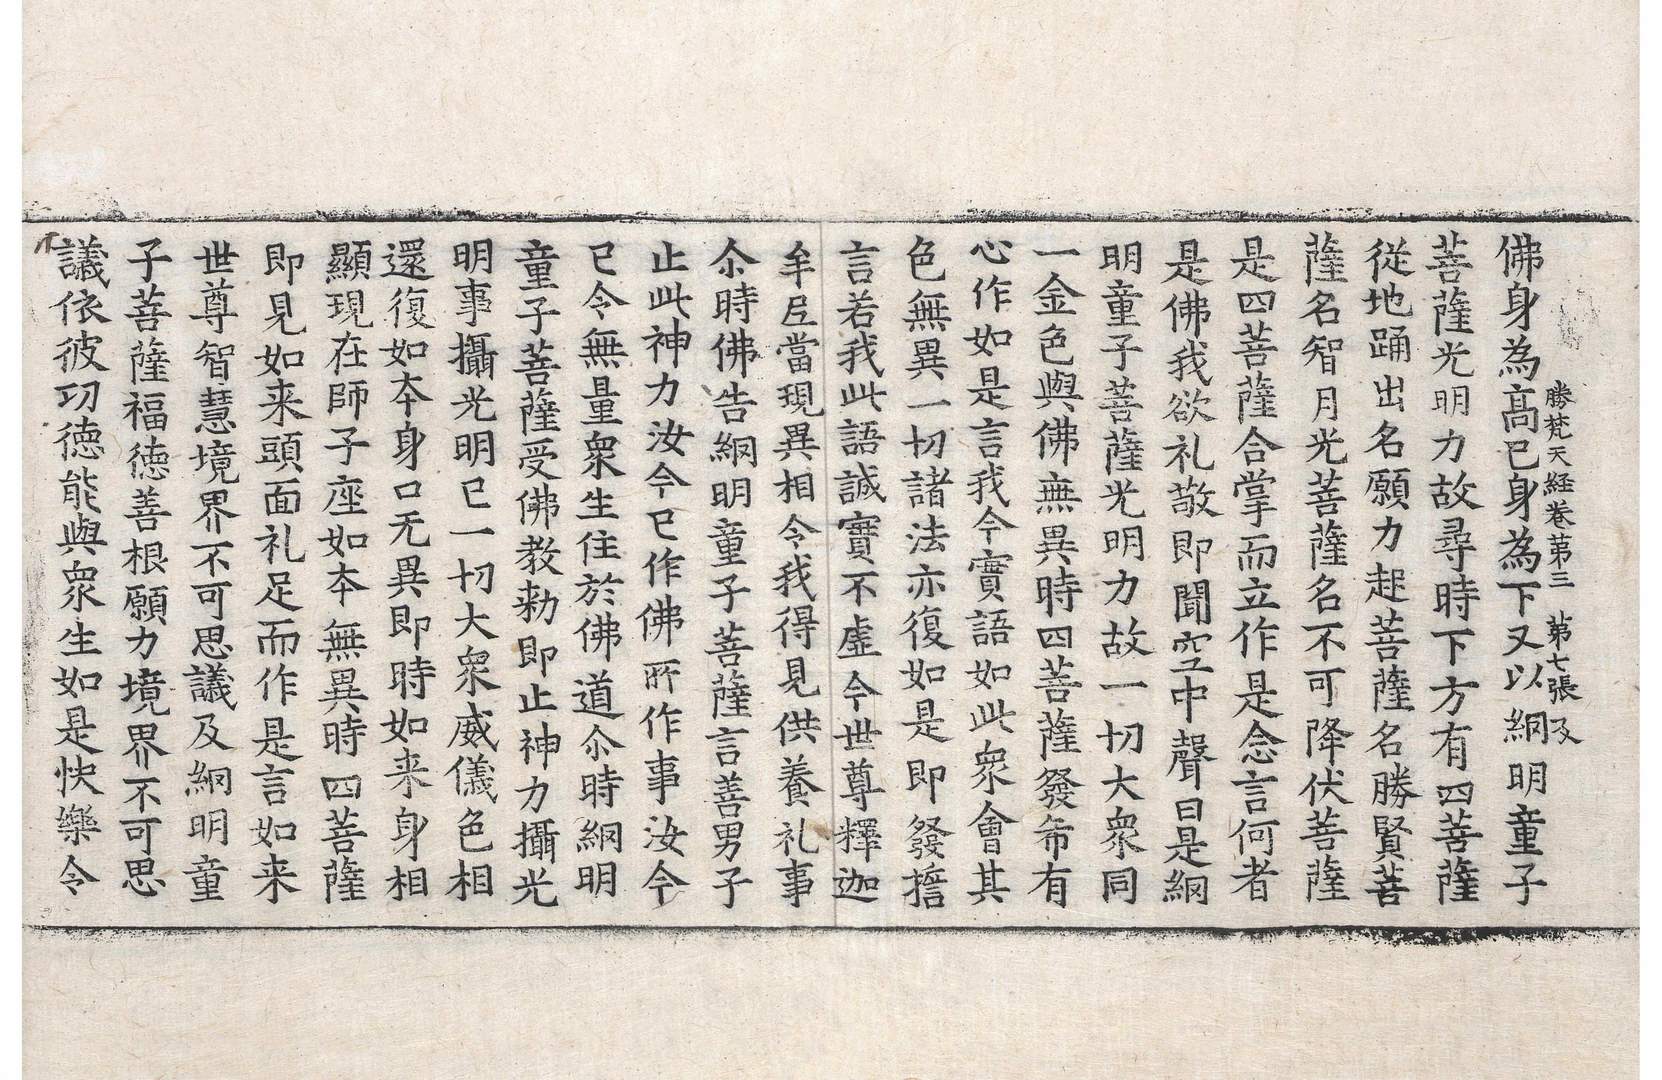 勝梵天経巻苐三 苐七張 及
佛身為髙已身為下又以網明童子
菩薩光明力故尋時下方有四菩薩
從地踊出名願力起菩薩名勝賢菩
薩名智月光菩薩名不可降伏菩薩
是四菩薩合掌而立作是念言何者
是佛我欲礼敬即聞空中聲曰是網
明童子菩薩光明力故一切大衆同
一金色與佛無異時四菩薩發希有
心作如是言我今實語如此衆會其
色無異一切諸法亦復如是即發誓
言若我此語誠實不虛今世尊釋迦
牟尼當現異相令我得見供養礼事
尒時佛告網明童子菩薩言善男子
止此神力汝今已作佛所作事汝今
已令無量衆生住於佛道尒時網明
童子菩薩受佛教勑即止神力攝光
明事攝光明已一切大衆威儀色相
還復如本身口无異即時如来身相
顯現在師子座如本無異時四菩薩
即見如来頭面礼足而作是言如来
世尊智慧境界不可思議及網明童
子菩薩福德善根願力境界不可思
議依彼功德能與衆生如是快樂令